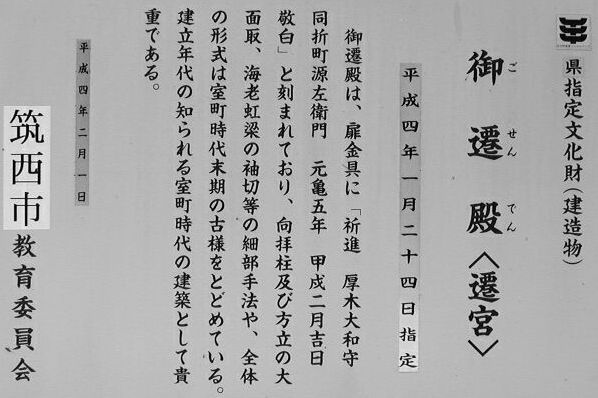 県指定文化財(建造物)
御遷殿〈遷宮〉
ごせんでん
平成四年一月二十四日指定
御遷殿は、扉金具に「祈進 厚木大和守
同折町源左衛門 元亀五年 甲戌二月吉日
敬白」と刻まれており、向拝柱及び方立の大
面取、海老虹梁の袖切等の細部手法や、全体
の形式は室町時代末期の古様をとどめている。
建立年代の知られる室町時代の建築として貴
重である。
平成四年二月一日
筑西市教育委員会